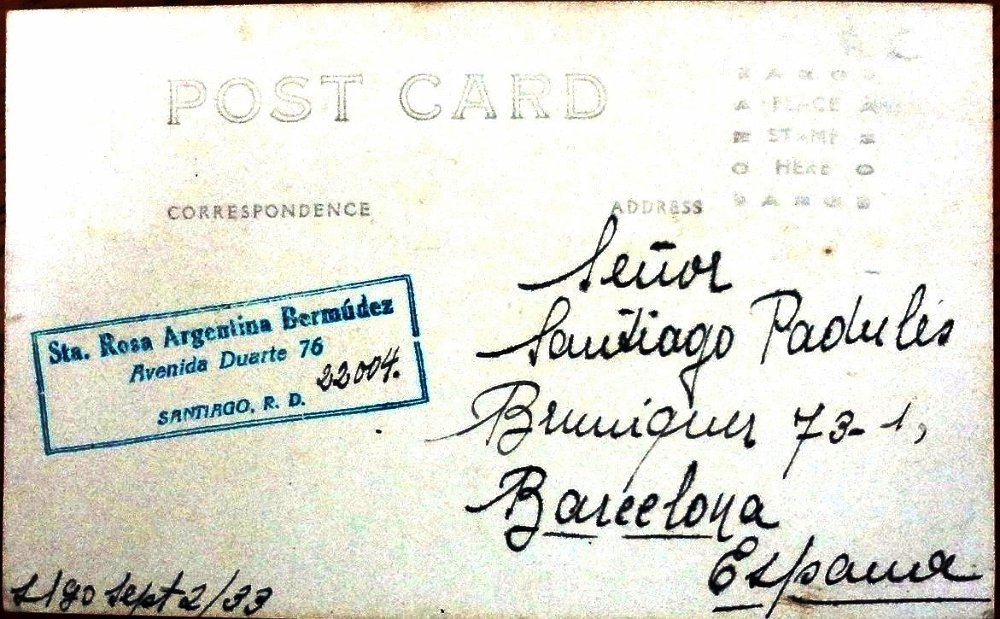 POST CARD
PLACE
STAMP
HERE
CORRESPONDENCE
ADDRESS
Sta. Rosa Argentina Bermúdez
Avenida Duarte 76
22004.
SANTIAGO, R. D.
Señor
Santiago Padulés
Bruniquer 73-1,
Barcelona
España
Stgo Sept 2/33